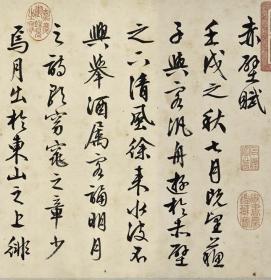 赤壁賦
壬戌之秋七月既望蘇
子與客汎舟遊於赤壁
之下清風徐來水波不
興舉酒属客誦明月
之詩歌窈窕之章少
焉月出於東山之上徘